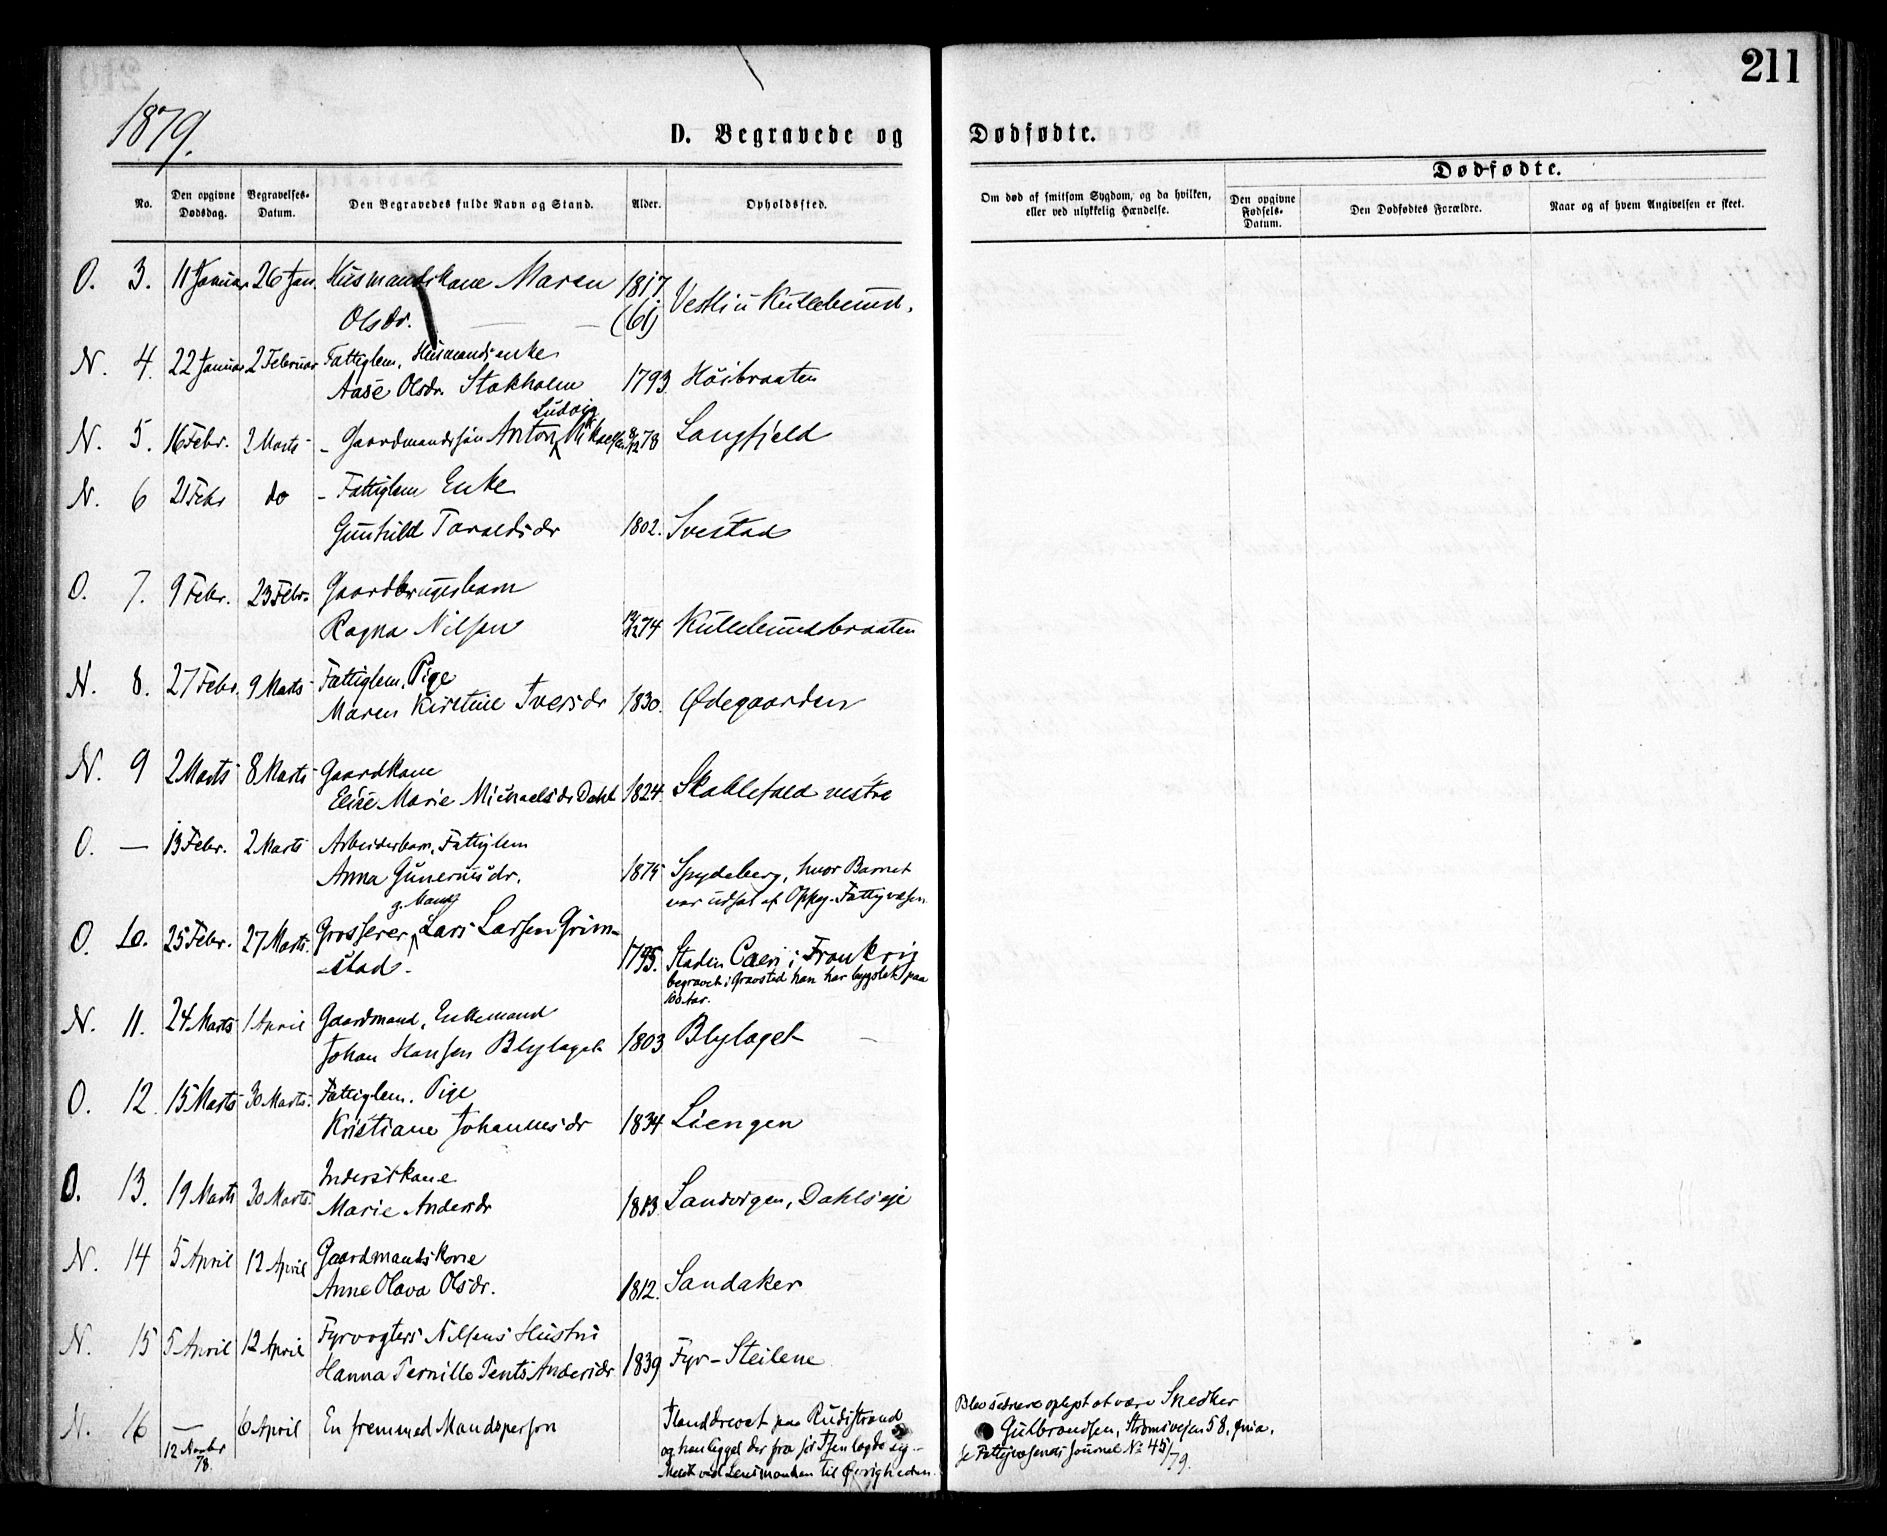 211
1879.
D. Begravede og Dødfødte.
Dødfødte.
No.
Den opgivne Dødsdag.
Begravelses-Datum.
Den Begravedes fulde Navn og Stand.
Alder.
Opholdssted.
Om død af smitsom Sygdom, og da hvilken, eller ved ulykkelig Hændelse.
Den opgivne Fødsels-Datum.
Den Dødfødtes Forældre.
Naar og af hvem Angivelsen er skeet.
O. 3. 11 Januar 26 Jan. Husmandskone Maren 1817
Olsdr. (61) Vestli u Kullebund.
N. 4. 22 Januar 2 Februar Fattiglem, Husmandsenke
Aase Olsdr. Stokholm 1793 Høibraaten
Ludvig
N. 5. 16 Febr. 2 Marts - Gaardmandssøn Anton Mikaelsen 8/12 78 Langfjeld
N. 6 21 Febr do - Fattiglem Enke
Gunhild Taraldsdr 1802. Svestad
O. 7. 9 Febr. 23 Febr. Gaardbrugerbarn
Ragna Nilsen 74 Kullebundbraaten
N. 8. 27 Febr. 9 Marts Fattiglem. Pige
Maren Kirstine Iversdr 1830. Ødegaarden
N. 9 2 Marts 8 Marts Gaardkone
Elise Marie Michaelsdr Dahl 1824. Skoklefald vestre
O. — 13 Febr. 2 Marts Arbeiderbarn, Fattiglem
Anna Gunerusdr. 1875 Spydeberg, hvor Barnet
var udsat af Oppeg. Fattigvæsen
g. Mand
O. 10. 25 Febr. 27 Marts. Grosserer Lars Larsen Grim-
stad. 1795. Staden Caen i Frankrig
begravet i Gravsted han har bygslet paa
100 Aar.
N. 11. 24 Marts 1 April Gaardmand, Enkemand
Johan Hansen Blylaget 1803 Blylaget
O. 12. 15 Marts 30 Marts. Fattiglem. Pige
Kristiane Johannesdr 1834 Liengen
O. 13. 19 Marts 30 Marts. Inderstkone
Marie Andersdr 1813 Sandvigen, Dahlseje
N. 14 5 April 12 April Gaardmandskone
Anne Olava Olsdr. 1812. Sandaker
N. 15 5 April 12 April Fyrvogters Nilsens Hustru
Hanna Pernille Andersdr 1839 Fyr - Steilene
N. 16 — 6 April En fremmed Mandsperson
12 Novbr 78.
Ilanddrevet paa Rudsstrand
og han ligget der fra før Isen lagde sig. -
Meldt ved Lensmanden til Øvrigheden.
Blev senere oplyst at være Snedker
Gulbrandsen, Strømsveien 58,
Fattigvæsenets Journal No 45/79.